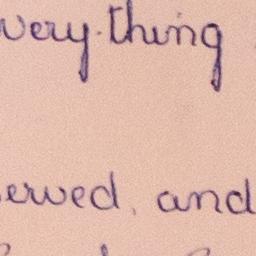 very thing
erved, and